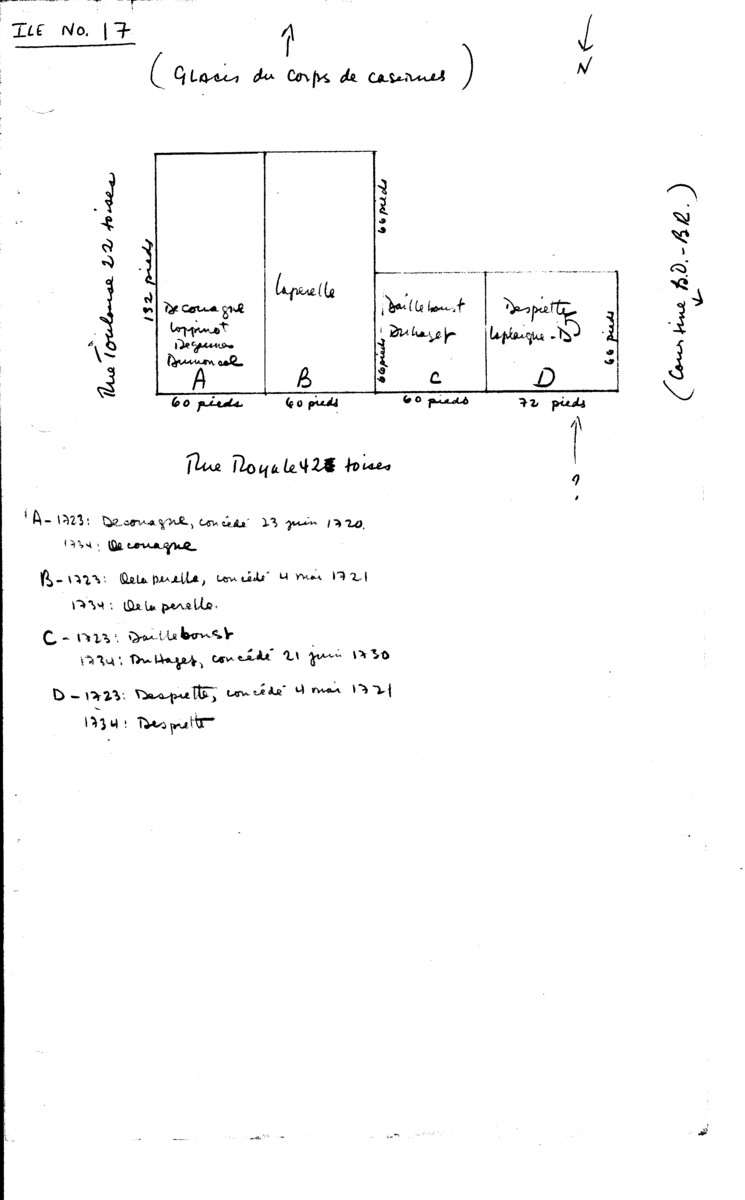 ILE NO. 17
(GLACIS du corps de casernes)
N
Rue Toulouse 22 toises
132 pieds
66 pieds
(Courtine B.D.-B.R.)
Decouagne
Loppinot
Degannes
A
Laperelle
B
Dailleboust
DuHaget
66 pieds
C
Despiette
Laplaigne-
66 pieds
D
60 pieds
60 pieds
60 pieds
72 pieds
Rue Royale 42 toises
?
A-1723: Decouagne, concédé 23 juin 1720.
1734: Decouagne
B-1723: Delaperelle, concédé 4 mai 1721
1734: Delaperelle.
C-1723: Dailleboust
1734: DuHaget, concédé 21 juin 1730
D-1723: Despiette, concédé 4 mai 1721
1734: Despiette